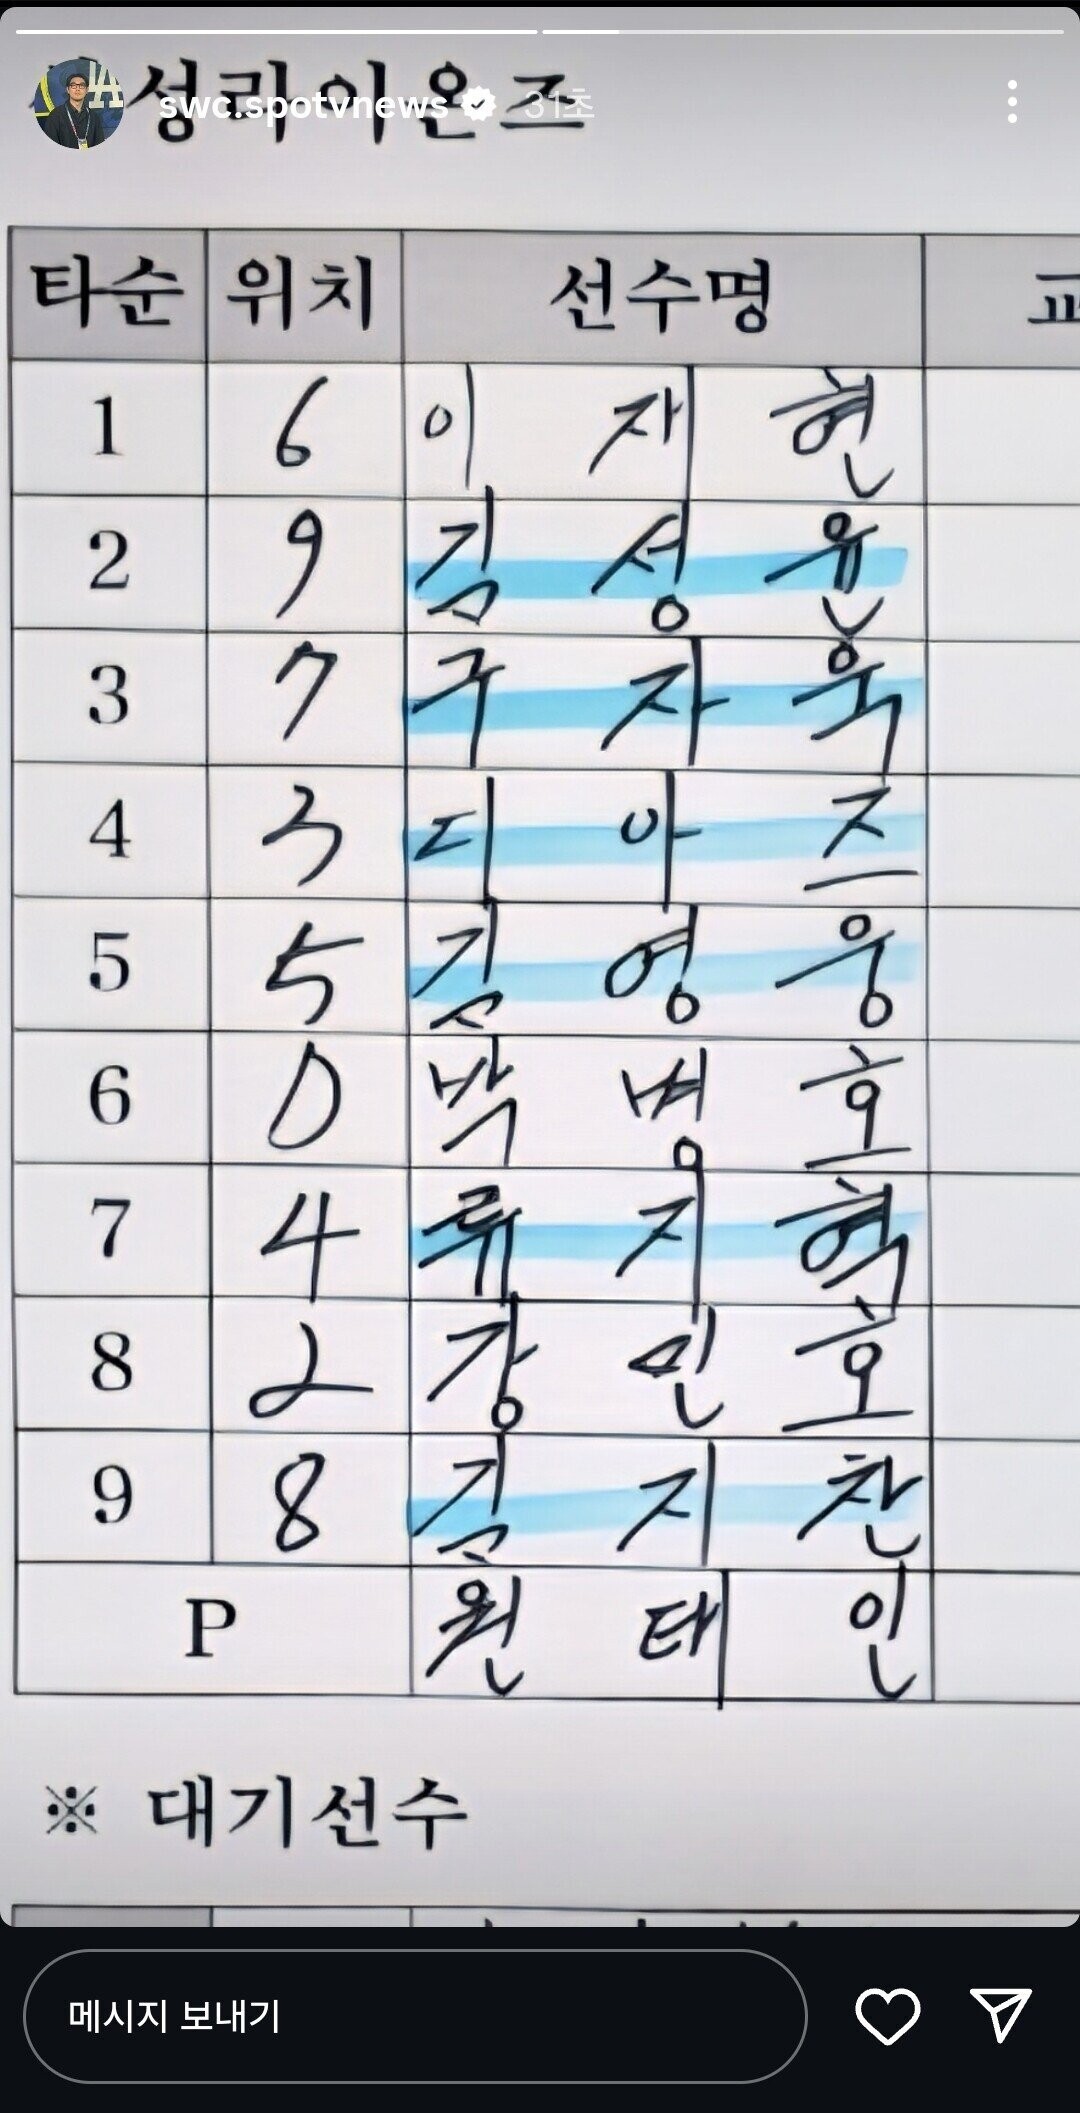 성리이온즈
swc.spotvnews 31초
타순 위치 선수명 교
1 6 이재현
2 9 김성윤
3 7 구자욱
4 3 디아즈
5 5 김영웅
6 D 박병호
7 4 류지혁
8 2 강민호
9 8 김지찬
P 원태인
※ 대기선수
메시지 보내기